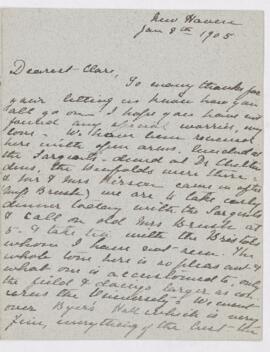 New Haven
Jan 8th 1905
Dearest Clare,
So many thanks for
your letting us know how you
all go on. I hope you have not
had any worries, my
love. We have been received
here with open arms. Lunched at
the Sargents - dined at Dr
there &
Mr & Mrs came in after
Mrs Brush) we are to take early
dinner today with the Sargents
& call on old Mrs Brush at
5 - & take tea with the Bristols
whom I have not seen. The
whole tone here is so pleasant &
what one is accustomed to, only
the field & always larger as
the University. We went
over Byers Hall which is very
fine, everything of the best - the